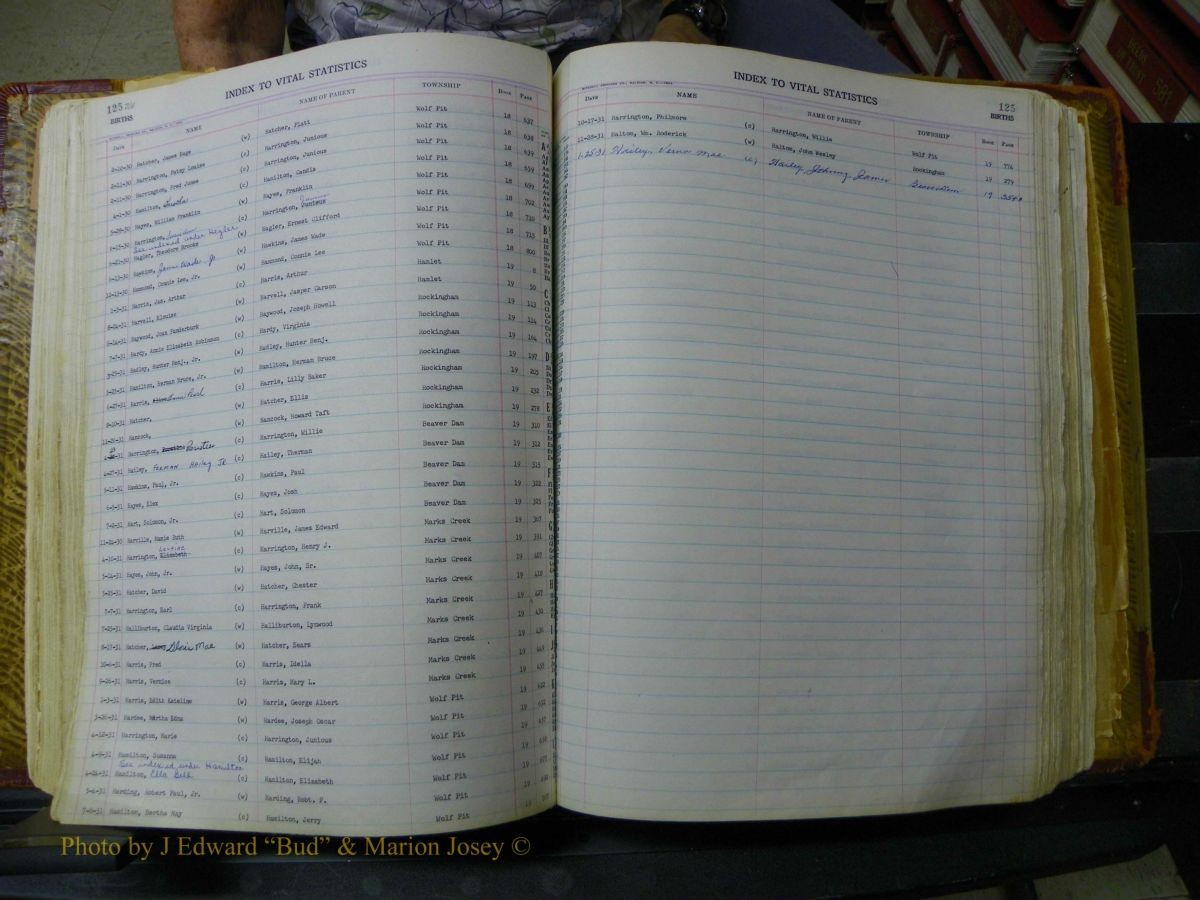 INDEX TO VITAL STATISTICS
125
BIRTHS
Date NAME NAME OF PARENT TOWNSHIP Book Page
2-10-30 Hatcher, James Hage (w) Hatcher, Platt Wolf Pit 18 637
2-11-30 Harrington, Patsy Louise (c) Harrington, Junious Wolf Pit 18 638
Harrington, Fred James (c) Harrington, Junious Wolf Pit 18 639
4-1-30 Hamilton, (c) Hamilton, Candis Wolf Pit 18 659
5-29-30 Hayes, William Franklin (w) Hayes, Franklin Wolf Pit 18 699
Harrington, (c) Harrington, Junious Wolf Pit 18 702
See indexed under Hegler
Hagler, Theodore Brooks (w) Hagler, Ernest Clifford Wolf Pit 18 710
Hawkins, James Wade Jr (w) Hawkins, James Wade Wolf Pit 18 715
12-13-30 Hammond, Connie Lee, Jr. (w) Hammond, Connie Lee Wolf Pit 18 800
Harris, Jas. Arthur (c) Harris, Arthur Hamlet 19 8
Harvell, Elouise (w) Harvell, Jasper Carson Hamlet 19 50
Haywood, Joan Funderburk (w) Haywood, Joseph Howell Rockingham 19 113
7-7-31 Hardy, Annie Elizabeth Robinson (c) Hardy, Virginia Rockingham 19 114
Hadley, Hunter Benj., Jr. (w) Hadley, Hunter Benj. Rockingham 19 164
Hamilton, Herman Bruce, Jr. (w) Hamilton, Herman Bruce Rockingham 19 197
4-27-31 Harris, Pearl (c) Harris, Lilly Baker Rockingham 19 205
8-10-31 Hatcher, (w) Hatcher, Ellis Rockingham 19 232
Hancock, (w) Hancock, Howard Taft Rockingham 19 278
Harrington, (c) Harrington, Willie Beaver Dam 19 310
4-27-31 Hailey, FERMAN HAILEY JR (c) Hailey, Therman Beaver Dam 19 312
5-11-31 Hawkins, Paul, Jr. (c) Hawkins, Paul Beaver Dam 19 315
6-5-31 Hayes, Alex (c) Hayes, Josh Beaver Dam 19 322
7-2-31 Hart, Solomon, Jr. (c) Hart, Solomon Beaver Dam 19 325
11-24-30 Harville, Mamie Ruth (w) Harville, James Edward Marks Creek 19 387
4-10-31 Harrington, Elizabeth (c) Harrington, Henry J. Marks Creek 19 391
5-14-31 Hayes, John, Jr. (w) Hayes, John, Sr. Marks Creek 19 407
5-25-31 Hatcher, David (w) Hatcher, Chester Marks Creek 19 410
7-7-31 Harrington, Earl (c) Harrington, Frank Marks Creek 19 427
7-25-31 Halliburton, Claudia Virginia (w) Halliburton, Lynwood Marks Creek 19 432
8-17-31 Hatcher, Mae (w) Hatcher, Sears Marks Creek 19 436
10-4-31 Harris, Fred (c) Harris, Idella Marks Creek 19 449
9-26-31 Harris, Vernice (c) Harris, Mary L. Marks Creek 19 455
2-3-31 Harris, Edith Kateline (w) Harris, George Albert Wolf Pit 19 622
3-20-31 Hardee, Martha Edna (w) Hardee, Joseph Oscar Wolf Pit 19 632
4-12-31 Harrington, Marie (c) Harrington, Junious Wolf Pit 19 637
4-9-31 Hamilton, Susanna (c) Hamilton, Elijah Wolf Pit 19
See indexed under Hamilton
4-24-31 Hamilton, Ella Bell (c) Hamilton, Elizabeth Wolf Pit 19
5-4-31 Harding, Robert Paul, Jr. (w) Harding, Robt. P. Wolf Pit 19
7-8-31 Hamilton, Bertha May (c) Hamilton, Jerry Wolf Pit
INDEX TO VITAL STATISTICS
125
BIRTHS
Date NAME NAME OF PARENT TOWNSHIP Book Page
10-17-31 Harrington, Philmore (c) Harrington, Willie Wolf Pit 19 774
11-28-31 Halton, Wm. Roderick (w) Halton, John Wesley Rockingham 19 279
1-25-31 Hailey, Verna Mae (c) Hailey, Johnny James 19
Photo by J Edward “Bud” & Marion Josey ©